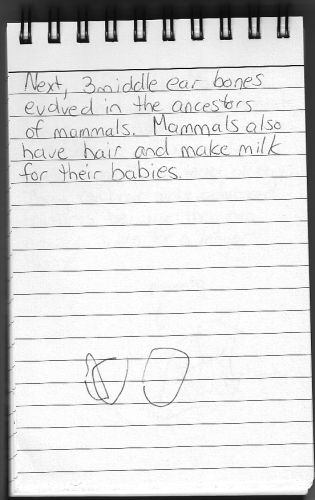 Next, 3 middle ear bones
evolved in the ancestors
of mammals. Mammals also
have hair and make milk
for their babies.